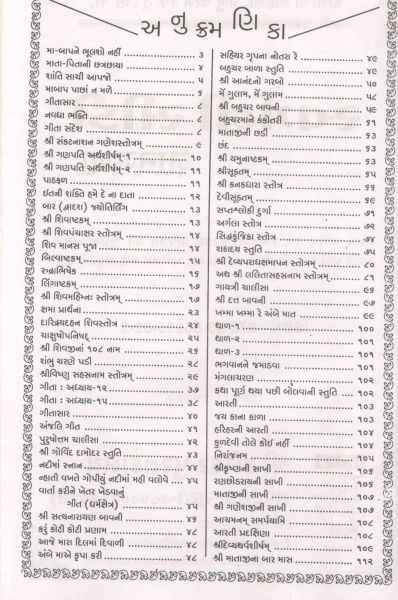 અનુક્રમણિકા
મા-બાપને ભૂલશો નહીં ........ ૩
માતા-પિતાની છત્રછાયા ........ ૪
શાંતિ સાચી આપજો ........ ૫
માબાપ પાછાં ન મળે ........ ૬
ગીતાસાર ........ ૮
નવધા ભક્તિ ........ ૮
ગીતા સંદેશ ........ ૮
શ્રી સંકટનાશન ગણેશસ્તોત્રમ્ ........ ૯
શ્રી ગણપતિ અર્થશીર્ષમ્-૧ ........ ૧૦
શ્રી ગણપતિ અર્થશીર્ષમ્-૨ ........ ૧૧
પાઠફળ ........ ૧૧
ઇતની શક્તિ હમે દે ના દાતા ........ ૧૨
બાર (દ્વાદશ) જ્યોતિર્લિંગ ........ ૧૩
શ્રી શિવાષ્ટકમ્ ........ ૧૩
શ્રી શિવપંચાક્ષર સ્તોત્રમ્ ........ ૧૪
શિવ માનસ પૂજા ........ ૧૪
બિલ્વાષ્ટકમ્ ........ ૧૫
રુદ્રાભિષેક ........ ૧૬
લિંગાષ્ટકમ્ ........ ૧૭
શ્રી શિવમહિમ્નઃ સ્તોત્રમ્ ........ ૧૭
ક્ષમા પ્રાર્થના ........ ૨૩
દારિદ્રયદહન શિવસ્તોત્ર ........ ૨૪
ચાક્ષુષોપનિષદ્ ........ ૨૫
શ્રી શિવજીનાં ૧૦૮ નામ ........ ૨૬
શંભુ ચરણે પડી ........ ૨૮
શ્રીવિષ્ણુ સહસ્રનામ સ્તોત્રમ્ ........ ૨૯
ગીતા : અધ્યાય-૧૨ ........ ૩૭
ગીતા : અધ્યાય-૧૫ ........ ૩૮
ગીતાસાર ........ ૪૦
અંજલિ ગીત ........ ૪૧
પુરુષોત્તમ ચાલીસા ........ ૪૨
શ્રી ગોવિંદ દામોદર સ્તુતિ ........ ૪૩
નદીમાં સ્નાન ........ ૪૪
નહાતી વખતે ગોપીચું નદીમાં મહી વલોવે ........ ૪૫
વાર્તા કદીને ખેતર ખેડવાનું
ગીત (ધર્મક્ષેત્ર) ........ ૪૫
શ્રી સત્યનારાયણ બાવની ........ ૪૬
કરું કોટી કોટી પ્રણામ ........ ૪૮
આજે મારા દિલમાં દિવાળી ........ ૪૮
અંબે માએ કૃપા કરી ........ ૪૮
સહિયર ગૃપના નોતરા રે ........ ૪૯
બહુચર બાળા સ્તુતિ ........ ૪૯
શ્રી આનંદનો ગરબો ........ ૫૦
મેં ગુલામ, મેં ગુલામ ........ ૫૮
શ્રી બહુચર બાવની ........ ૫૯
બહુચરમાને કંકોતરી ........ ૬૧
માતાજીની છડી ........ ૬૩
છંદ ........ ૬૩
શ્રી યમુનાષ્ટકમ્ ........ ૬૩
શ્રીસૂક્તમ્ ........ ૬૫
શ્રી કનકધારા સ્તોત્ર ........ ૬૬
દેવીસૂક્તમ્ ........ ૬૯
સપ્તશ્લોકી દુર્ગા ........ ૭૧
અર્ગલા સ્તોત્ર ........ ૭૨
સિદ્ધકુંજિકા સ્તોત્ર ........ ૭૪
શક્રાદય સ્તુતિ ........ ૭૫
શ્રી દેવ્યપરાધક્ષમાપન સ્તોત્રમ્ ........ ૮૦
અથ શ્રી લલિતાસહસ્રનામ સ્તોત્રમ્ ........ ૮૧
ગાયત્રી ચાલીસા ........ ૯૫
શ્રી દત્ત બાવની ........ ૯૭
ખમ્મા ખમ્મા રે અંબે માત ........ ૯૯
થાળ-૧ ........ ૧૦૦
થાળ-૨ ........ ૧૦૧
થાળ-૩ ........ ૧૦૧
ભગવાનને જમાડવા ........ ૧૦૧
મંગલાચરણ ........ ૧૦૨
કથા પૂર્ણ થયા પછી બોલવાની સ્તુતિ .... ૧૦૨
આરતી ........ ૧૦૩
જય કાના કાળા ........ ૧૦૩
હરિહરની આરતી ........ ૧૦૪
કુળદેવી તોલે કોઈ નહીં ........ ૧૦૪
નિરાંજનમ્ ........ ૧૦૫
શ્રીકૃષ્ણની સાખી ........ ૧૦૬
રણછોડરાયની સાખી ........ ૧૦૬
માતાજીની સાખી ........ ૧૦૭
શ્રી ગણેશજીની સાખી ........ ૧૦૭
આચમનમ્ સમર્પયામિ ........ ૧૦૮
આરતી પ્રદક્ષિણા ........ ૧૦૮
શ્રીદેવ્યથર્વશીર્ષમ્ ........ ૧૦૯
શ્રી માતાજીના બાર માસ ........ ૧૧૨